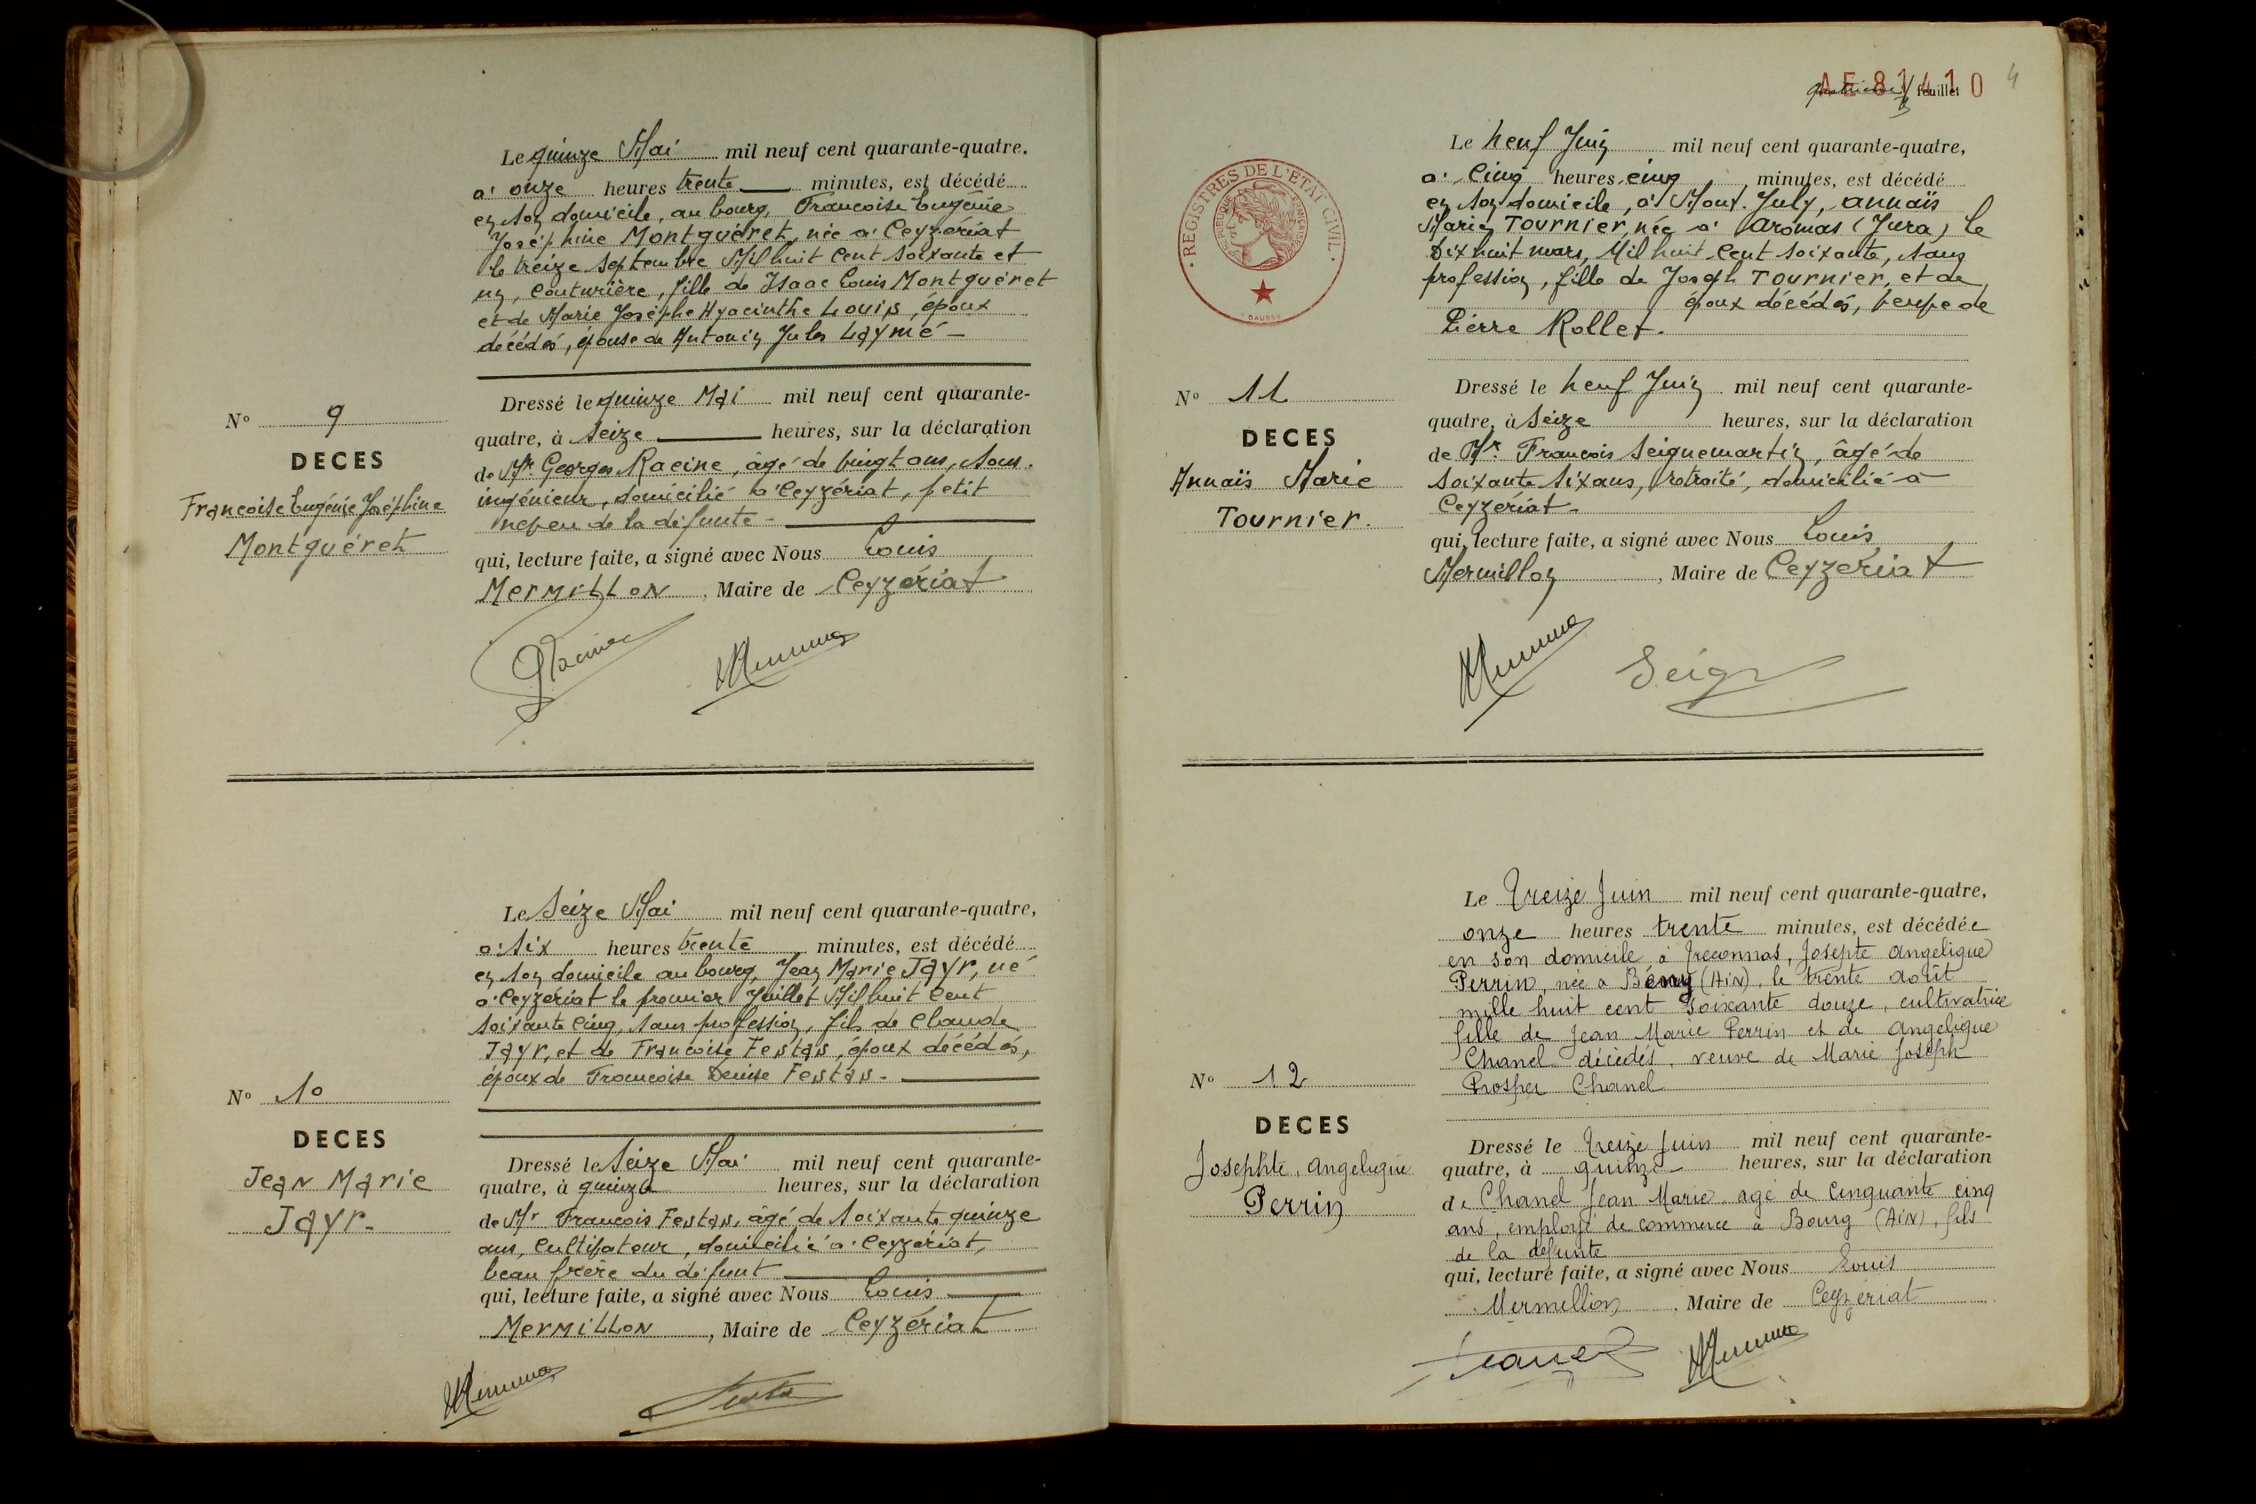 Le quinze Mai mil neuf cent quarante-quatre.
à onze heures trente minutes, est décédé
en son domicile, au bourg, Françoise Eugénie
Joséphine Montguéret, née à Ceyzériat
le treize Septembre Mil huit Cent Soixante et
un, Couturière, fille de Isaac Louis Montguéret
et de Marie Josèphe Hyacinthe Louis, époux
décédés, épouse de Antonin Jules Laymé
N° 9
DECES
Françoise Eugénie Joséphine
Montguéret
Dressé le quinze Mai mil neuf cent quarante-
quatre, à Seize heures, sur la déclaration
de Mr Georges Racine, âgé de vingt ans, Sous.
ingénieur, domicilié à Ceyzériat, petit
neveu de la défunte -
qui, lecture faite, a signé avec Nous Louis
Mermillon, Maire de Ceyzériat
Le Seize Mai mil neuf cent quarante-quatre,
à Six heures trente minutes, est décédé
en son domicile au bourg, Jean Marie Jayr, né
à Ceyzériat le premier Juillet Mil huit Cent
Soixante Cinq, sans profession, fils de Claude
Jayr, et de Françoise Festas, époux décédés,
époux de Françoise Denise Festas.
N° 10
DECES
Jean Marie
Jayr.
Dressé le Seize Mai mil neuf cent quarante-
quatre, à quinze heures, sur la déclaration
de Mr François Festas, âgé de Soixante quinze
ans, Cultivateur, domicilié à Ceyzériat,
beau frère du défunt
qui, lecture faite, a signé avec Nous Louis
Mermillon, Maire de Ceyzériat
AE 81410 4
feuillet
REGISTRES DE L'ÉTAT CIVIL
Le neuf Juin mil neuf cent quarante-quatre,
à Cinq heures cinq minutes, est décédé
en son domicile, à Mont. July, Annaïs
Marie Tournier, née à Aromas (Jura) le
Dix huit mars, Mil huit Cent Soixante, sans
profession, fille de Joseph Tournier, et de
époux décédés, veuve de
Pierre Rollet.
N° 11
DECES
Annaïs Marie
Tournier.
Dressé le neuf Juin mil neuf cent quarante-
quatre, à Seize heures, sur la déclaration
de Mr. François Seignemartin, âgé de
Soixante Six ans, retraité, domicilié à
Ceyzériat.
qui, lecture faite, a signé avec Nous Louis
Mermillon, Maire de Ceyzériat
Le Treize Juin mil neuf cent quarante-quatre,
onze heures trente minutes, est décédée
en son domicile à Treconnas, Josephte Angelique
Perrin, née à Bény (Ain), le trente août
mille huit cent soixante douze, cultivatrice
fille de Jean Marie Perrin et de Angelique
Chanel décédés, veuve de Marie Joseph
Prosper Chanel
N° 12
DECES
Josephte, Angelique
Perrin
Dressé le Treize Juin mil neuf cent quarante-
quatre, à quinze heures, sur la déclaration
de Chanel Jean Marie agé de Cinquante cinq
ans, employé de commerce à Bourg (Ain), fils
de la défunte
qui, lecture faite, a signé avec Nous Louis
Mermillon, Maire de Ceyzériat